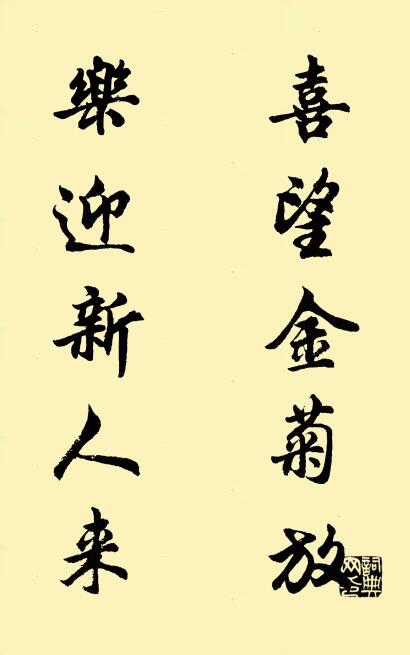 喜望金菊放
樂迎新人来
詞典网